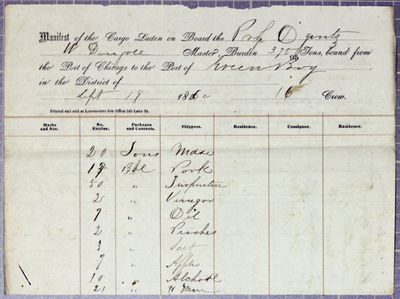 Manifest of the Cargo Laden on Board the Prop
Master, Burden 375 Tons, bound from
the Port of Chicago to the Port of Green Bay
in the District of
Sept 19 1860 16 Crew.
Printed and sold at Locomotive Job Office
Marks and Nos. No. Entries. Packages and Contents. Shippers. Residence. Consignee. Residence.
20 Tons Mdse
Bbl Pork
50 " Turpentine
2 " Vinegar
7 " Oil
2 " Peaches
3 " Salt
7 " Apples
10 " Alchohol
21 "